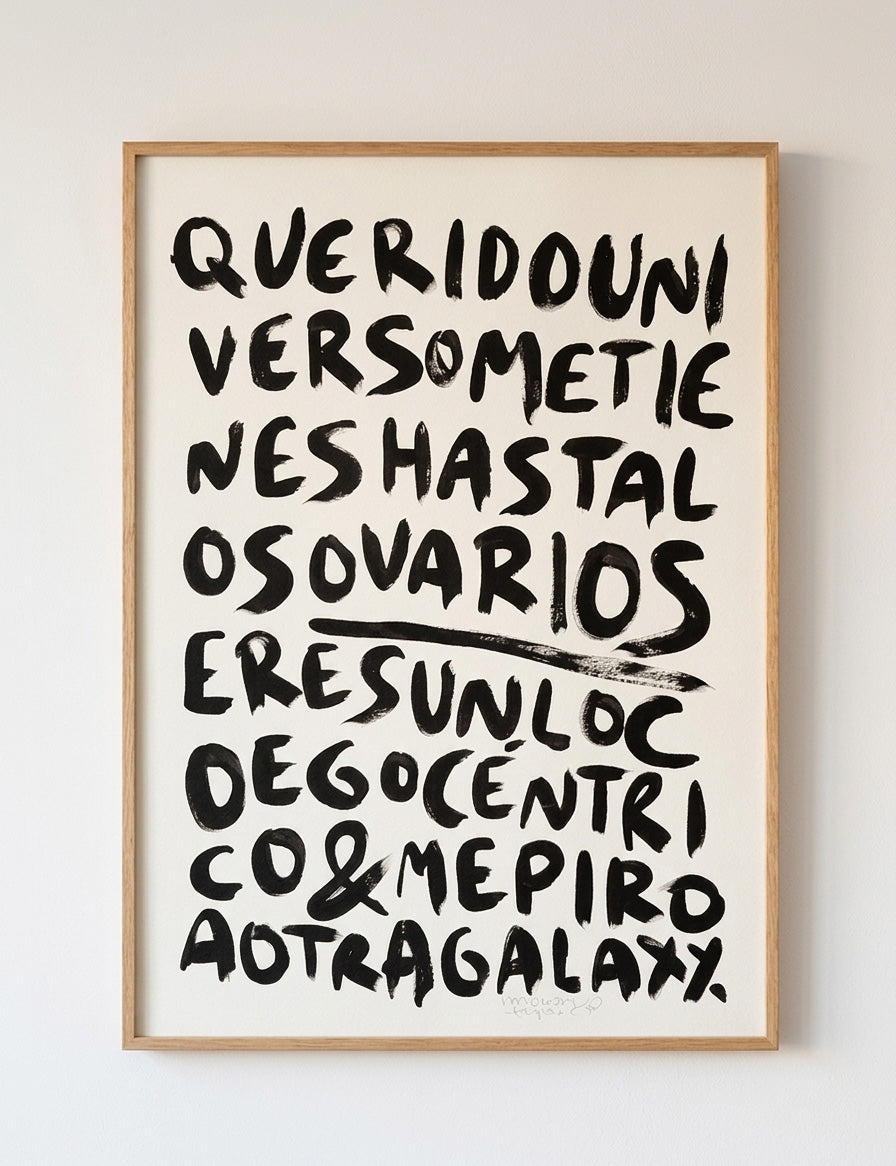 QUERIDOUNI
VERSOMETIE
NESHASTAL
OSOVARIOS
ERESUNLOC
OEGOCÉNTRI
CO&MEPIRO
AOTRAGALAXY.